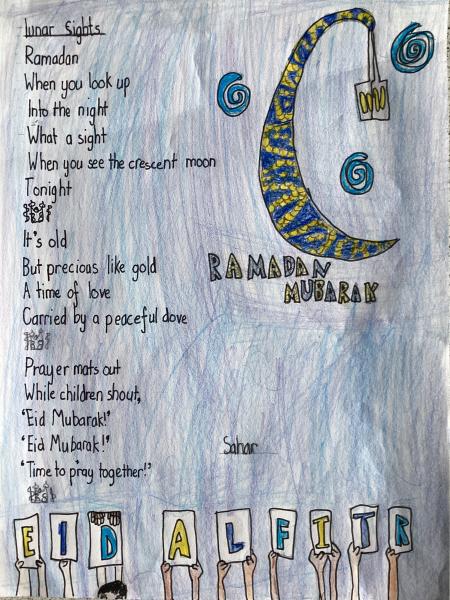 lunar Sights
Ramadan
When you look up
Into the night
What a sight
When you see the crescent moon
Tonight
It's old
But precious like gold
A time of love
Carried by a peaceful dove
Prayer mats out
While children shout,
'Eid Mubarak!'
'Eid Mubarak!'
'Time to pray together!'
RAMADAN
MUBARAK
Sahar
EID AL FITR